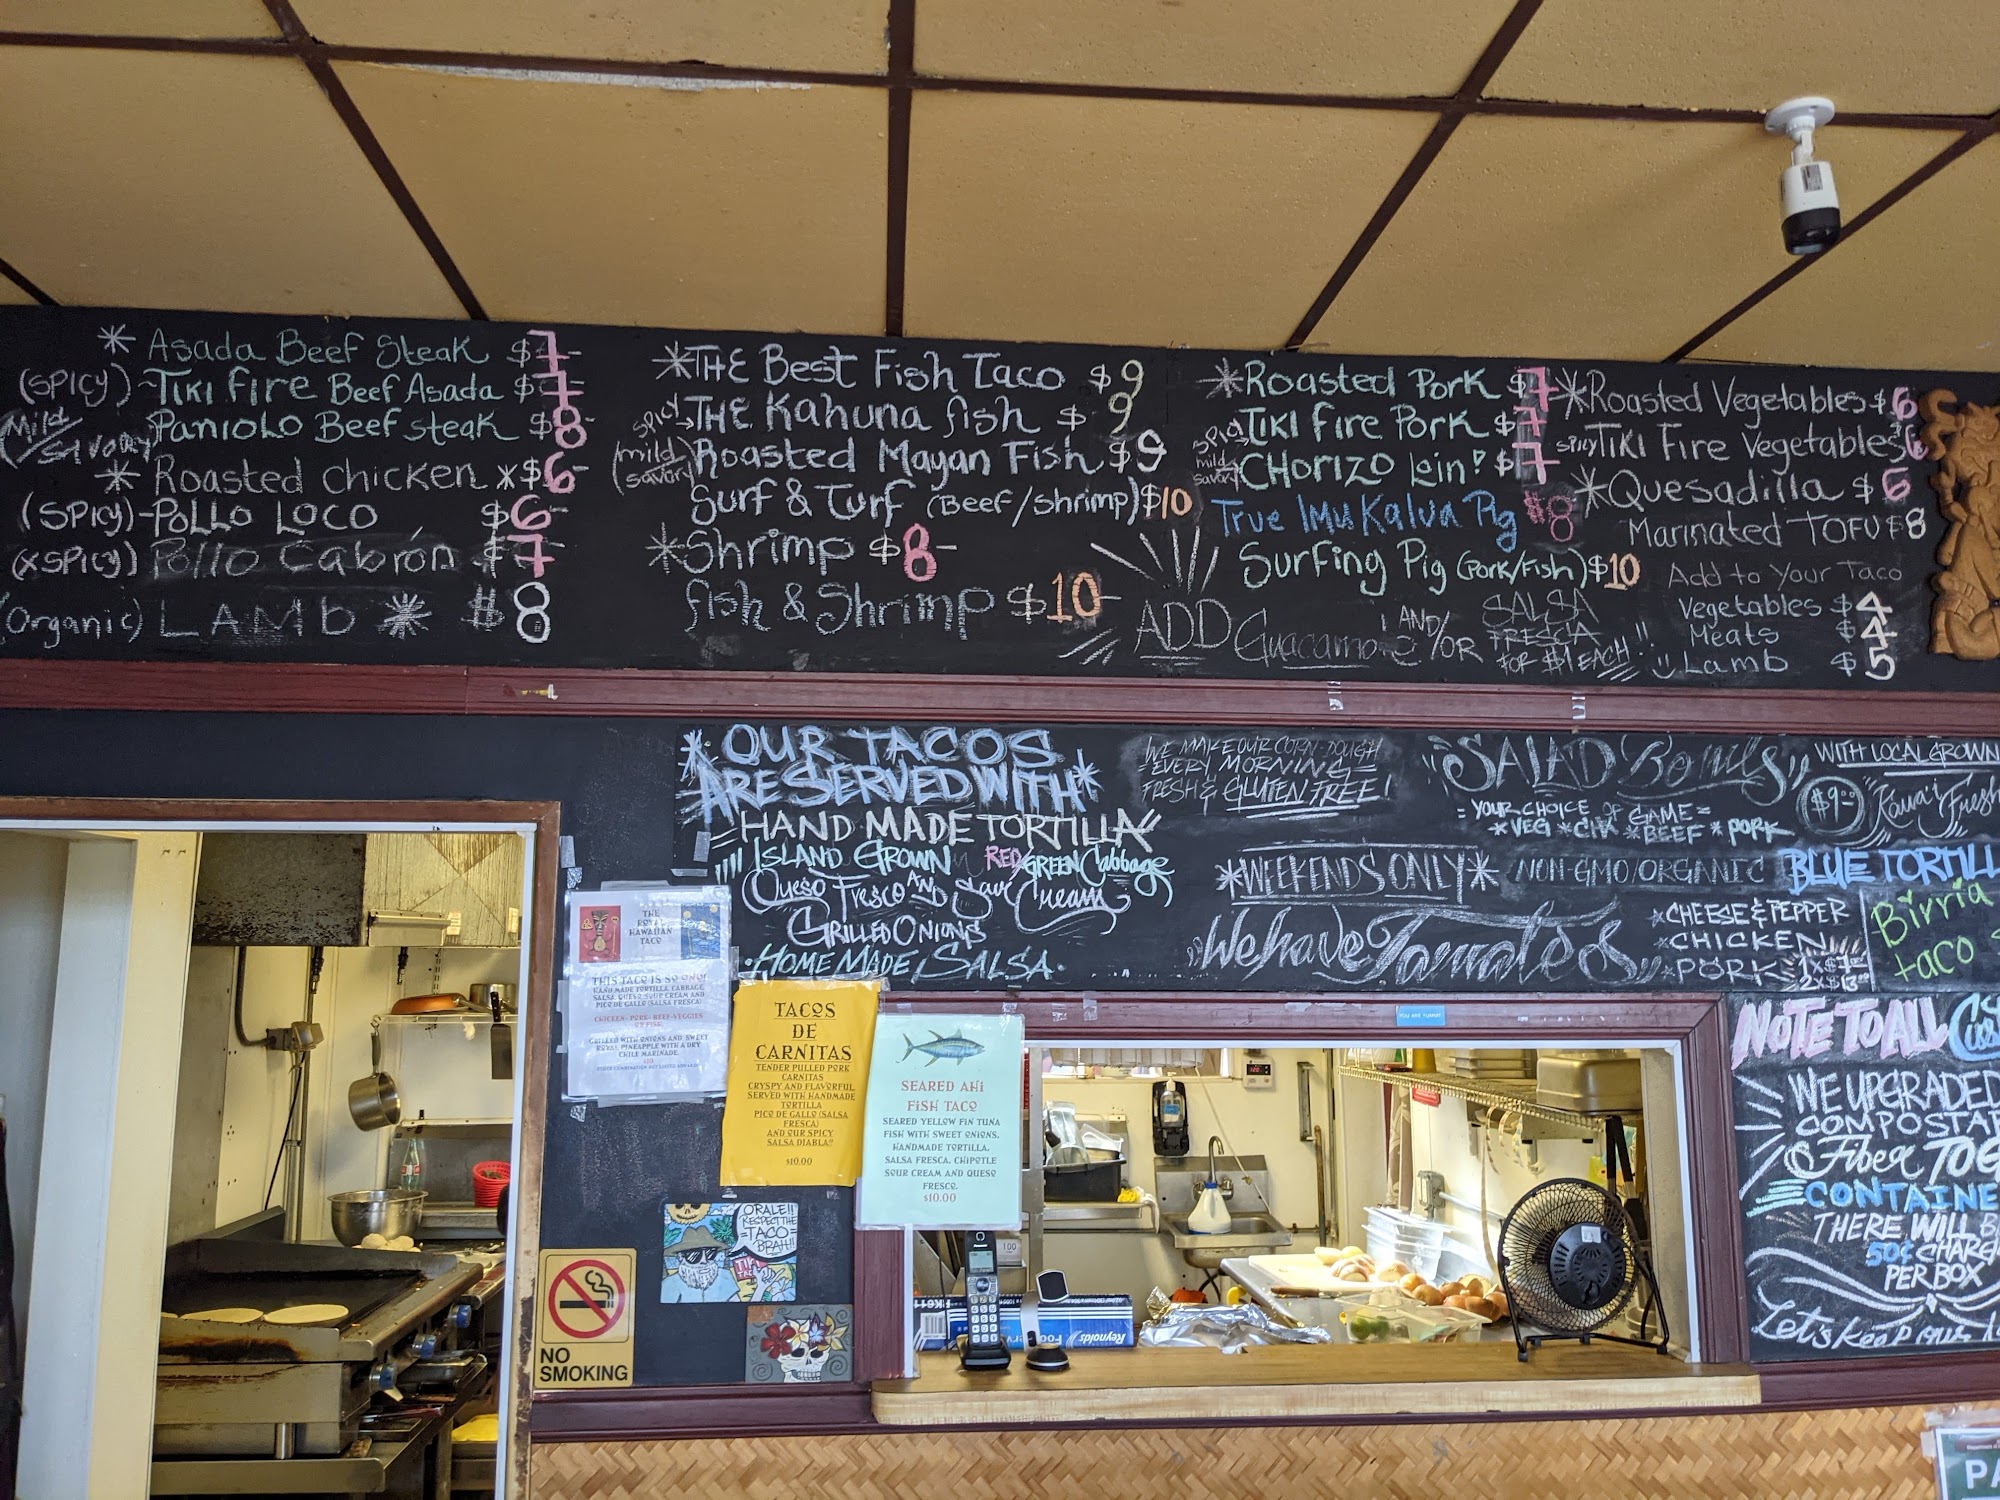 * Asada Beef Steak $7-
(SPICY) ~TIKI fire Beef Asada $7-
Mild/Savory PANIOLO Beef steak $8-
* Roasted chicken *$6-
(SPICY)-POLLO LOCO $6-
(XSPICY) Pollo Cabrón $7-
(Organic) LAMb * $8
*THE Best Fish Taco $9
SPICY→THE Kahuna fish $9
(mild savory) Roasted Mayan Fish $9
Surf & Turf (Beef/Shrimp) $10
*Shrimp $8-
fish & Shrimp $10-
*Roasted Pork $7
SPICY TIKI fire Pork $7
mild savory CHORIZO Loin! $7
True IMU Kalua Pig $8
Surfing Pig (Pork/Fish) $10
ADD Guacamole AND/OR SALSA FRESCA FOR $1 EACH!!
*Roasted Vegetables $6
SPICY TIKI Fire Vegetables 6
*Quesadilla $6
Marinated TOFU $8
Add to Your Taco
Vegetables $4
Meats $4
Lamb $5
*OUR TACOS
ARE SERVED WITH*
HAND MADE TORTILLA
ISLAND GROWN RED/GREEN Cabbage
Queso Fresco AND Sour Cream
GRILLED ONIONS
·HOME MADE SALSA·
WE MAKE OUR CORN-DOUGH
=EVERY MORNING=
FRESH & GLUTEN FREE!
"SALAD Bowls"
WITH LOCAL GROWN
=YOUR CHOICE OF GAME=
*VEG *CIK *BEEF *PORK
$9.00
Kaua'i Fresh
*WEEKENDS ONLY*
NON-GMO/ORGANIC
BLUE TORTILL
"We have Tamales"
*CHEESE & PEPPER
*CHICKEN
*PORK
1x$7.00
2x$13.00
Birria
taco
NOTE TO ALL
WE UPGRADED
COMPOSTA
Fiber TO G
CONTAINE
THERE WILL B
50¢ CHARG
PER BOX
Let's keep our
THE
ROYAL
HAWAIIAN
TACO
THIS TACO IS SO ONO!
HAND MADE TORTILLA, CABBAGE,
SALSA, QUESO, SOUR CREAM AND
PICO DE GALLO (SALSA FRESCA)
CHICKEN- PORK- BEEF-VEGGIES
OR FISH
GRILLED WITH ONIONS AND SWEET
ROYAL PINEAPPLE WITH A DRY
CHILE MARINADE.
TACOS
DE
CARNITAS
TENDER PULLED PORK
CARNITAS
CRYSPY AND FLAVORFUL
SERVED WITH HANDMADE
TORTILLA
PICO DE GALLO (SALSA
FRESCA)
AND OUR SPICY
SALSA DIABLA!!
$10.00
SEARED AHI
FISH TACO
SEARED YELLOW FIN TUNA
FISH WITH SWEET ONIONS,
HANDMADE TORTILLA,
SALSA FRESCA, CHIPOTLE
SOUR CREAM AND QUESO
FRESCO.
$10.00
YOU ARE YUMMY
ORALE!!
RESPECT THE
=TACO=
BRAH!!
NO
SMOKING
Panasonic
Reynolds
Foo
100
PA